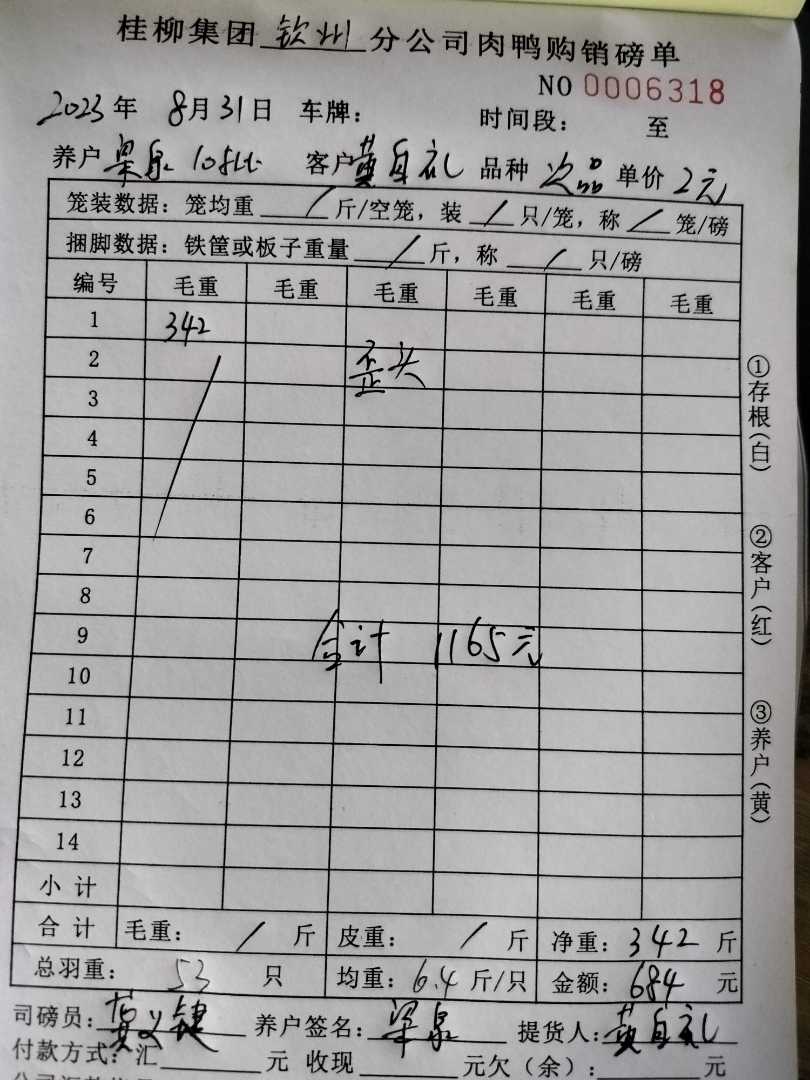 桂柳集团 钦州 分公司肉鸭购销磅单
NO 0006318
2023年 8月31日 车牌： 时间段： 至
养户 梁泉 10批 客户 黄自礼 品种 次品 单价 2元
笼装数据：笼均重 / 斤/空笼，装 / 只/笼，称 / 笼/磅
捆脚数据：铁筐或板子重量 / 斤，称 / 只/磅
编号 毛重 毛重 毛重 毛重 毛重 毛重
1 342
2 歪头
3
4
5
6
7
8
9 合计 1165元
10
11
12
13
14
小计
合计 毛重： / 斤 皮重： / 斤 净重：342 斤
总羽重： 53 只 均重：6.4 斤/只 金额：684 元
司磅员：黄义键 养户签名：梁泉 提货人：黄自礼
付款方式：汇 元 收现 元欠（余）： 元
①存根（白）
②客户（红）
③养户（黄）